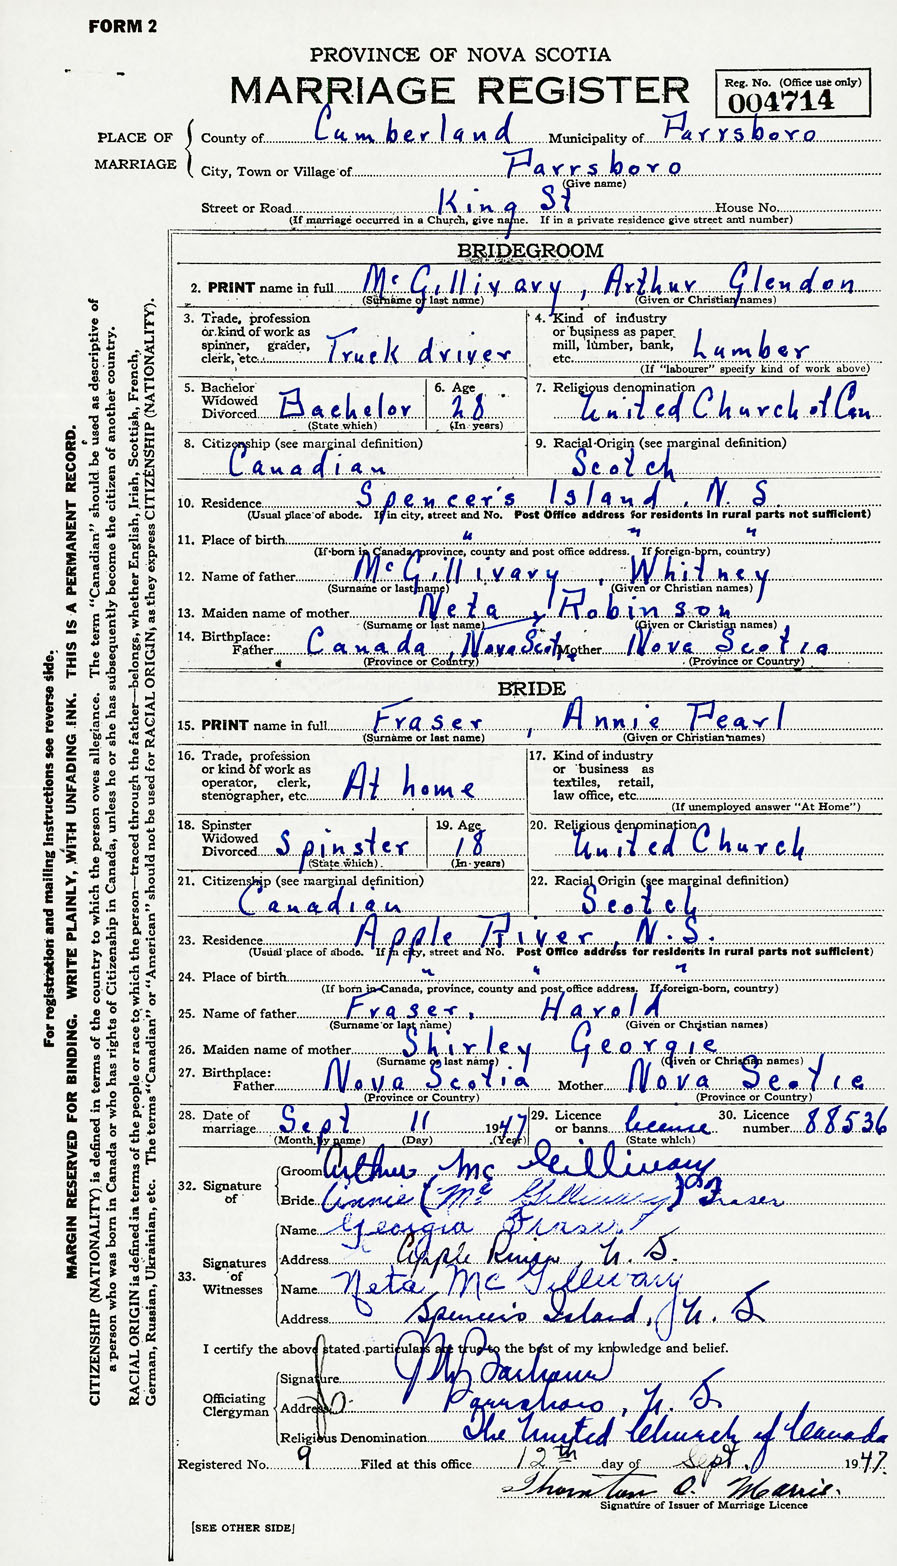 FORM 2
PROVINCE OF NOVA SCOTIA
MARRIAGE REGISTER
Reg. No. (Office use only)
004714
PLACE OF MARRIAGE
County of Cumberland Municipality of Parrsboro
City, Town or Village of Parrsboro
(Give name)
Street or Road King St House No.
(If marriage occurred in a Church, give name. If in a private residence give street and number)
BRIDEGROOM
2. PRINT name in full McGillivary, Arthur Glendon
(Surname or last name) (Given or Christian names)
3. Trade, profession or kind of work as spinner, grader, clerk, etc. Truck driver
4. Kind of industry or business as paper mill, lumber, bank, etc. Lumber
(If "labourer" specify kind of work above)
5. Bachelor Widowed Divorced Bachelor
(State which)
6. Age 28
(In years)
7. Religious denomination United Church of Can
8. Citizenship (see marginal definition)
Canadian
9. Racial Origin (see marginal definition)
Scotch
10. Residence Spencer's Island, N. S
(Usual place of abode. If in city, street and No. Post Office address for residents in rural parts not sufficient)
11. Place of birth " " "
(If born in Canada, province, county and post office address. If foreign-born, country)
12. Name of father McGillivary, Whitney
(Surname or last name) (Given or Christian names)
13. Maiden name of mother Neta, Robinson
(Surname or last name) (Given or Christian names)
14. Birthplace: Father Canada, Nova Scot, Mother Nova Scotia
(Province or Country) (Province or Country)
BRIDE
15. PRINT name in full Fraser, Annie Pearl
(Surname or last name) (Given or Christian names)
16. Trade, profession or kind of work as operator, clerk, stenographer, etc. At home
17. Kind of industry or business as textiles, retail, law office, etc.
(If unemployed answer "At Home")
18. Spinster Widowed Divorced Spinster
(State which)
19. Age 18
(In years)
20. Religious denomination United Church
21. Citizenship (see marginal definition)
Canadian
22. Racial Origin (see marginal definition)
Scotch
23. Residence Apple River, N.S.
(Usual place of abode. If in city, street and No. Post Office address for residents in rural parts not sufficient)
24. Place of birth " " "
(If born in Canada, province, county and post office address. If foreign-born, country)
25. Name of father Fraser, Harold
(Surname or last name) (Given or Christian names)
26. Maiden name of mother Shirley Georgie
(Surname or last name) (Given or Christian names)
27. Birthplace: Father Nova Scotia Mother Nova Scotia
(Province or Country) (Province or Country)
28. Date of marriage Sept 11 1947
(Month, by name) (Day) (Year)
29. Licence or banns license
(State which)
30. Licence number 88536
32. Signature of
Groom Arthur McGillivary
Bride Annie (McGillivary) Fraser
33. Signatures of Witnesses
Name Georgia Fraser
Address Apple River, N. S.
Name Neta McGillivary
Address Spencer's Island, N. S
I certify the above stated particulars are true to the best of my knowledge and belief.
Officiating Clergyman
Signature
Address Parrsboro, N. S
Religious Denomination The United Church of Canada
Registered No. 9 Filed at this office 12th day of Sept. 1947.
Thornton
Signature of Issuer of Marriage Licence
[SEE OTHER SIDE]
For registration and mailing instructions see reverse side.
MARGIN RESERVED FOR BINDING. WRITE PLAINLY, WITH UNFADING INK. THIS IS A PERMANENT RECORD.
CITIZENSHIP (NATIONALITY) is defined in terms of the country to which the person owes allegiance. The term "Canadian" should be used as descriptive of
a person who was born in Canada or who has rights of Citizenship in Canada, unless he or she has subsequently become the citizen of another country.
RACIAL ORIGIN is defined in terms of the people or race to which the person—traced through the father—belongs, whether English, Irish, Scottish, French,
German, Russian, Ukrainian, etc. The terms "Canadian" or "American" should not be used for RACIAL ORIGIN, as they express CITIZENSHIP (NATIONALITY).